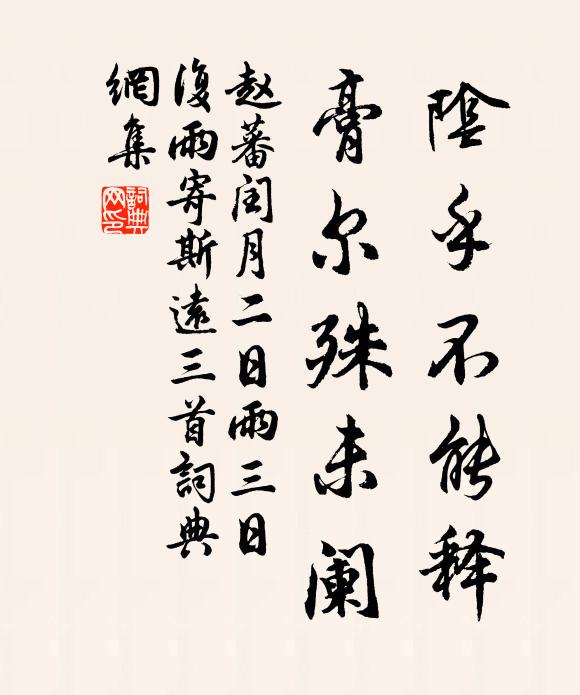 陰乎不能释
膏尔殊未阑
赵蕃闰月二日雨三日
復雨寄斯遠三首詞典
網集
詞典網印